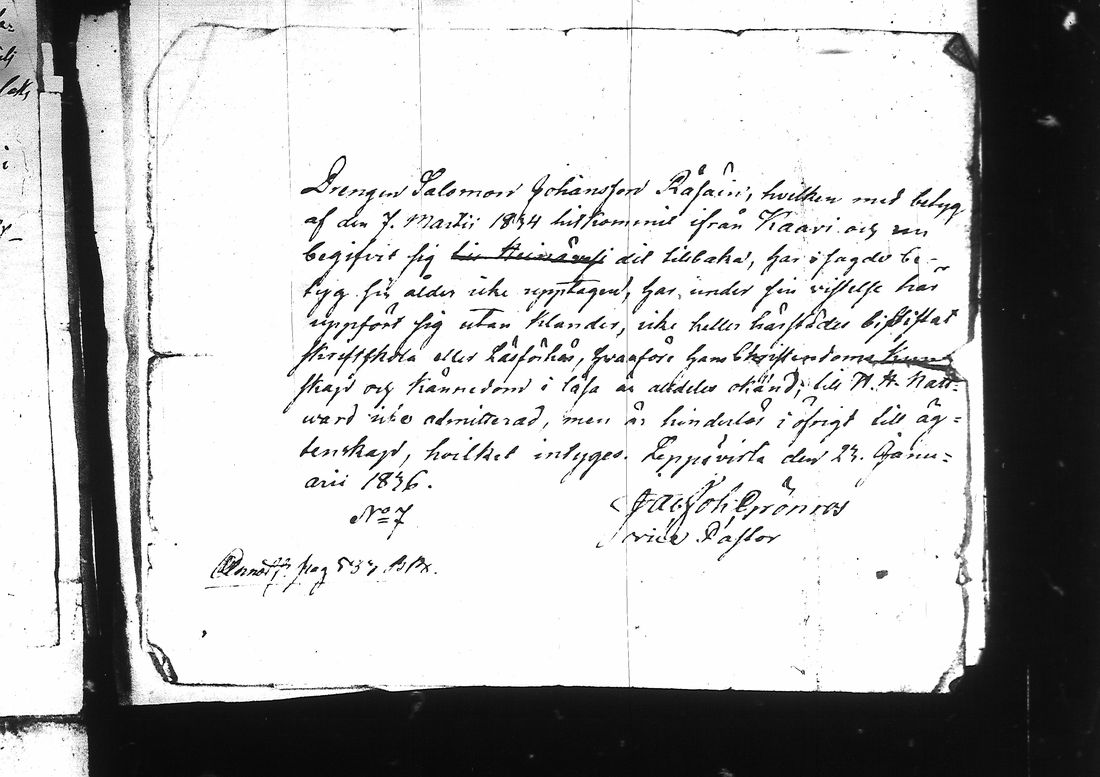 Drengen Salomon Johansson Räsäin, hvilken med betyg
af den 7. Martii 1834 hitkommit ifrån Kaavi och nu
begifvit sig till Heinävesi dit tillbaka, har i sagde be-
tyg för ålder icke upptagen, har under sin vistelse här
uppfört sig utan klander, icke heller härstädes bististat
Skriftskola eller Läsförhör, hvarföre hans Christendoms kun
skap och kännedom i läsa är aldeles okänd, till H. H. Natt-
ward icke admitterad, men är hinderlös i öfrigt till äg-
tenskap, hvilket intygas. Leppävirta den 23. Janu-
arii 1836.
No 7
Jac. Joh. Grönroos
vice Pastor
pag 537